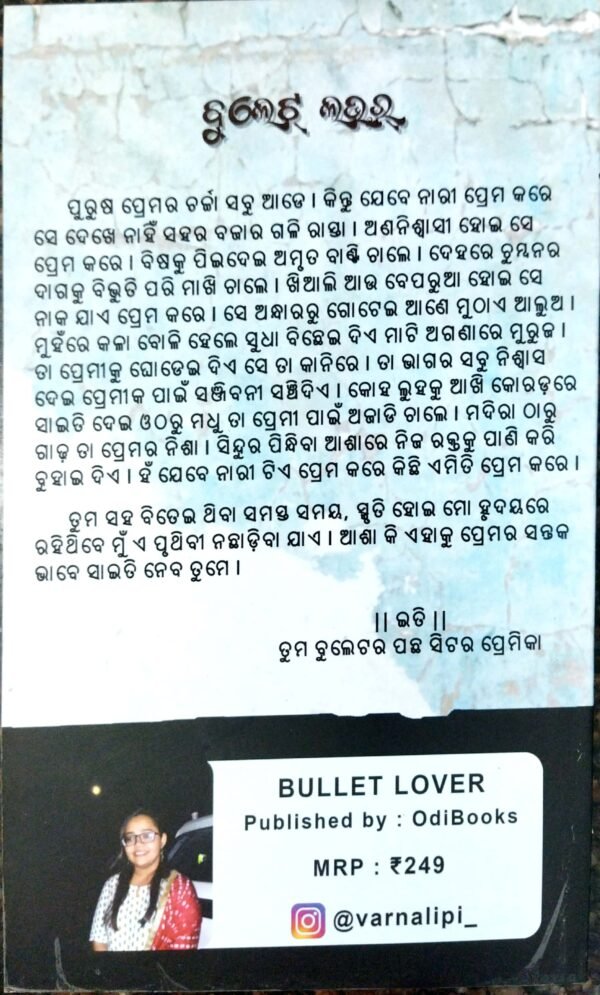 ବୁଲେଟ୍ ଲଭର୍
ପୁରୁଷ ପ୍ରେମର ଚର୍ଚ୍ଚା ସବୁ ଆଡେ । କିନ୍ତୁ ଯେବେ ନାରୀ ପ୍ରେମ କରେ
ସେ ଦେଖେ ନାହିଁ ସହର ବଜାର ଗଳି ରାସ୍ତା । ଅଣନିଶ୍ୱାସୀ ହୋଇ ସେ
ପ୍ରେମ କରେ । ବିଷକୁ ପିଇଦେଇ ଅମୃତ ବାଣ୍ଟି ଚାଲେ । ଦେହରେ ଚୁମ୍ବନର
ଦାଗକୁ ବିଭୁତି ପରି ମାଖି ଚାଲେ । ଖିଆଲି ଆଉ ବେପରୁଆ ହୋଇ ସେ
ନାକ ଯାଏ ପ୍ରେମ କରେ । ସେ ଅନ୍ଧାରରୁ ଗୋଟେଇ ଆଣେ ମୁଠାଏ ଆଲୁଅ ।
ମୁହଁରେ କଳା ବୋଳି ହେଲେ ସୁଧା ବିଛେଇ ଦିଏ ମାଟି ଅଗଣାରେ ମୁରୁଜ ।
ତା ପ୍ରେମୀକୁ ଘୋଡେଇ ଦିଏ ସେ ତା କାନିରେ । ତା ଭାଗର ସବୁ ନିଶ୍ୱାସ
ଦେଇ ପ୍ରେମୀକ ପାଇଁ ସଞ୍ଜିବନୀ ସଞ୍ଚିଦିଏ । କୋହ ଲୁହକୁ ଆଖି କୋରଡ଼ରେ
ସାଇତି ଦେଇ ଓଠରୁ ମଧୁ ତା ପ୍ରେମୀ ପାଇଁ ଅଜାଡି ଚାଲେ । ମଦିରା ଠାରୁ
ଗାଢ଼ ତା ପ୍ରେମର ନିଶା । ସିନ୍ଦୁର ପିନ୍ଧିବା ଆଶାରେ ନିଜ ରକ୍ତକୁ ପାଣି କରି
ବୁହାଇ ଦିଏ । ହଁ ଯେବେ ନାରୀ ଟିଏ ପ୍ରେମ କରେ କିଛି ଏମିତି ପ୍ରେମ କରେ ।
ତୁମ ସହ ବିତେଇ ଥିବା ସମସ୍ତ ସମୟ, ସ୍ମୃତି ହୋଇ ମୋ ହୃଦୟରେ
ରହିଥିବେ ମୁଁ ଏ ପୃଥିବୀ ନଛାଡ଼ିବା ଯାଏ । ଆଶା କି ଏହାକୁ ପ୍ରେମର ସନ୍ତକ
ଭାବେ ସାଇତି ନେବ ତୁମେ ।
|| ଇତି ||
ତୁମ ବୁଲେଟର ପଛ ସିଟର ପ୍ରେମିକା
BULLET LOVER
Published by : OdiBooks
MRP : ₹249
@varnalipi_